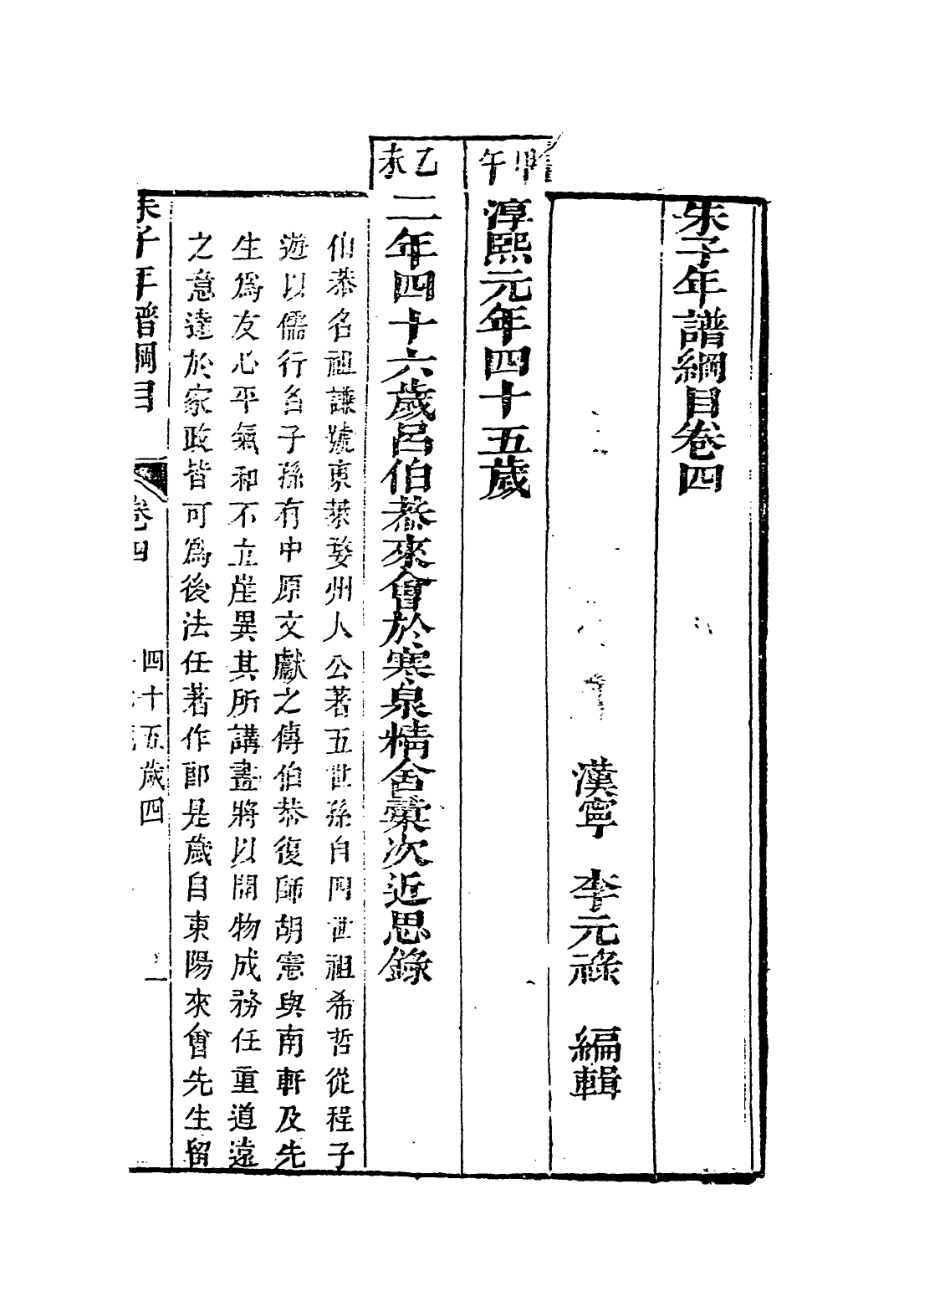 朱子年譜綱目卷四
漢寧 李元祿 編輯
甲午
淳熙元年四十五歲
乙未
二年四十六歲呂伯恭來會於寒泉精舍彙次近思錄
伯恭名祖謙號東萊婺州人公著五世孫自四世祖希哲從程子
遊以儒行名子孫有中原文獻之傳伯恭復師胡憲與南軒及先
生爲友心平氣和不立崖異其所講畫將以開物成務任重道遠
之意達於家政皆可爲後法任著作郎是歲自東陽來會先生留
朱子年譜綱目 卷四 四十五歲四 一